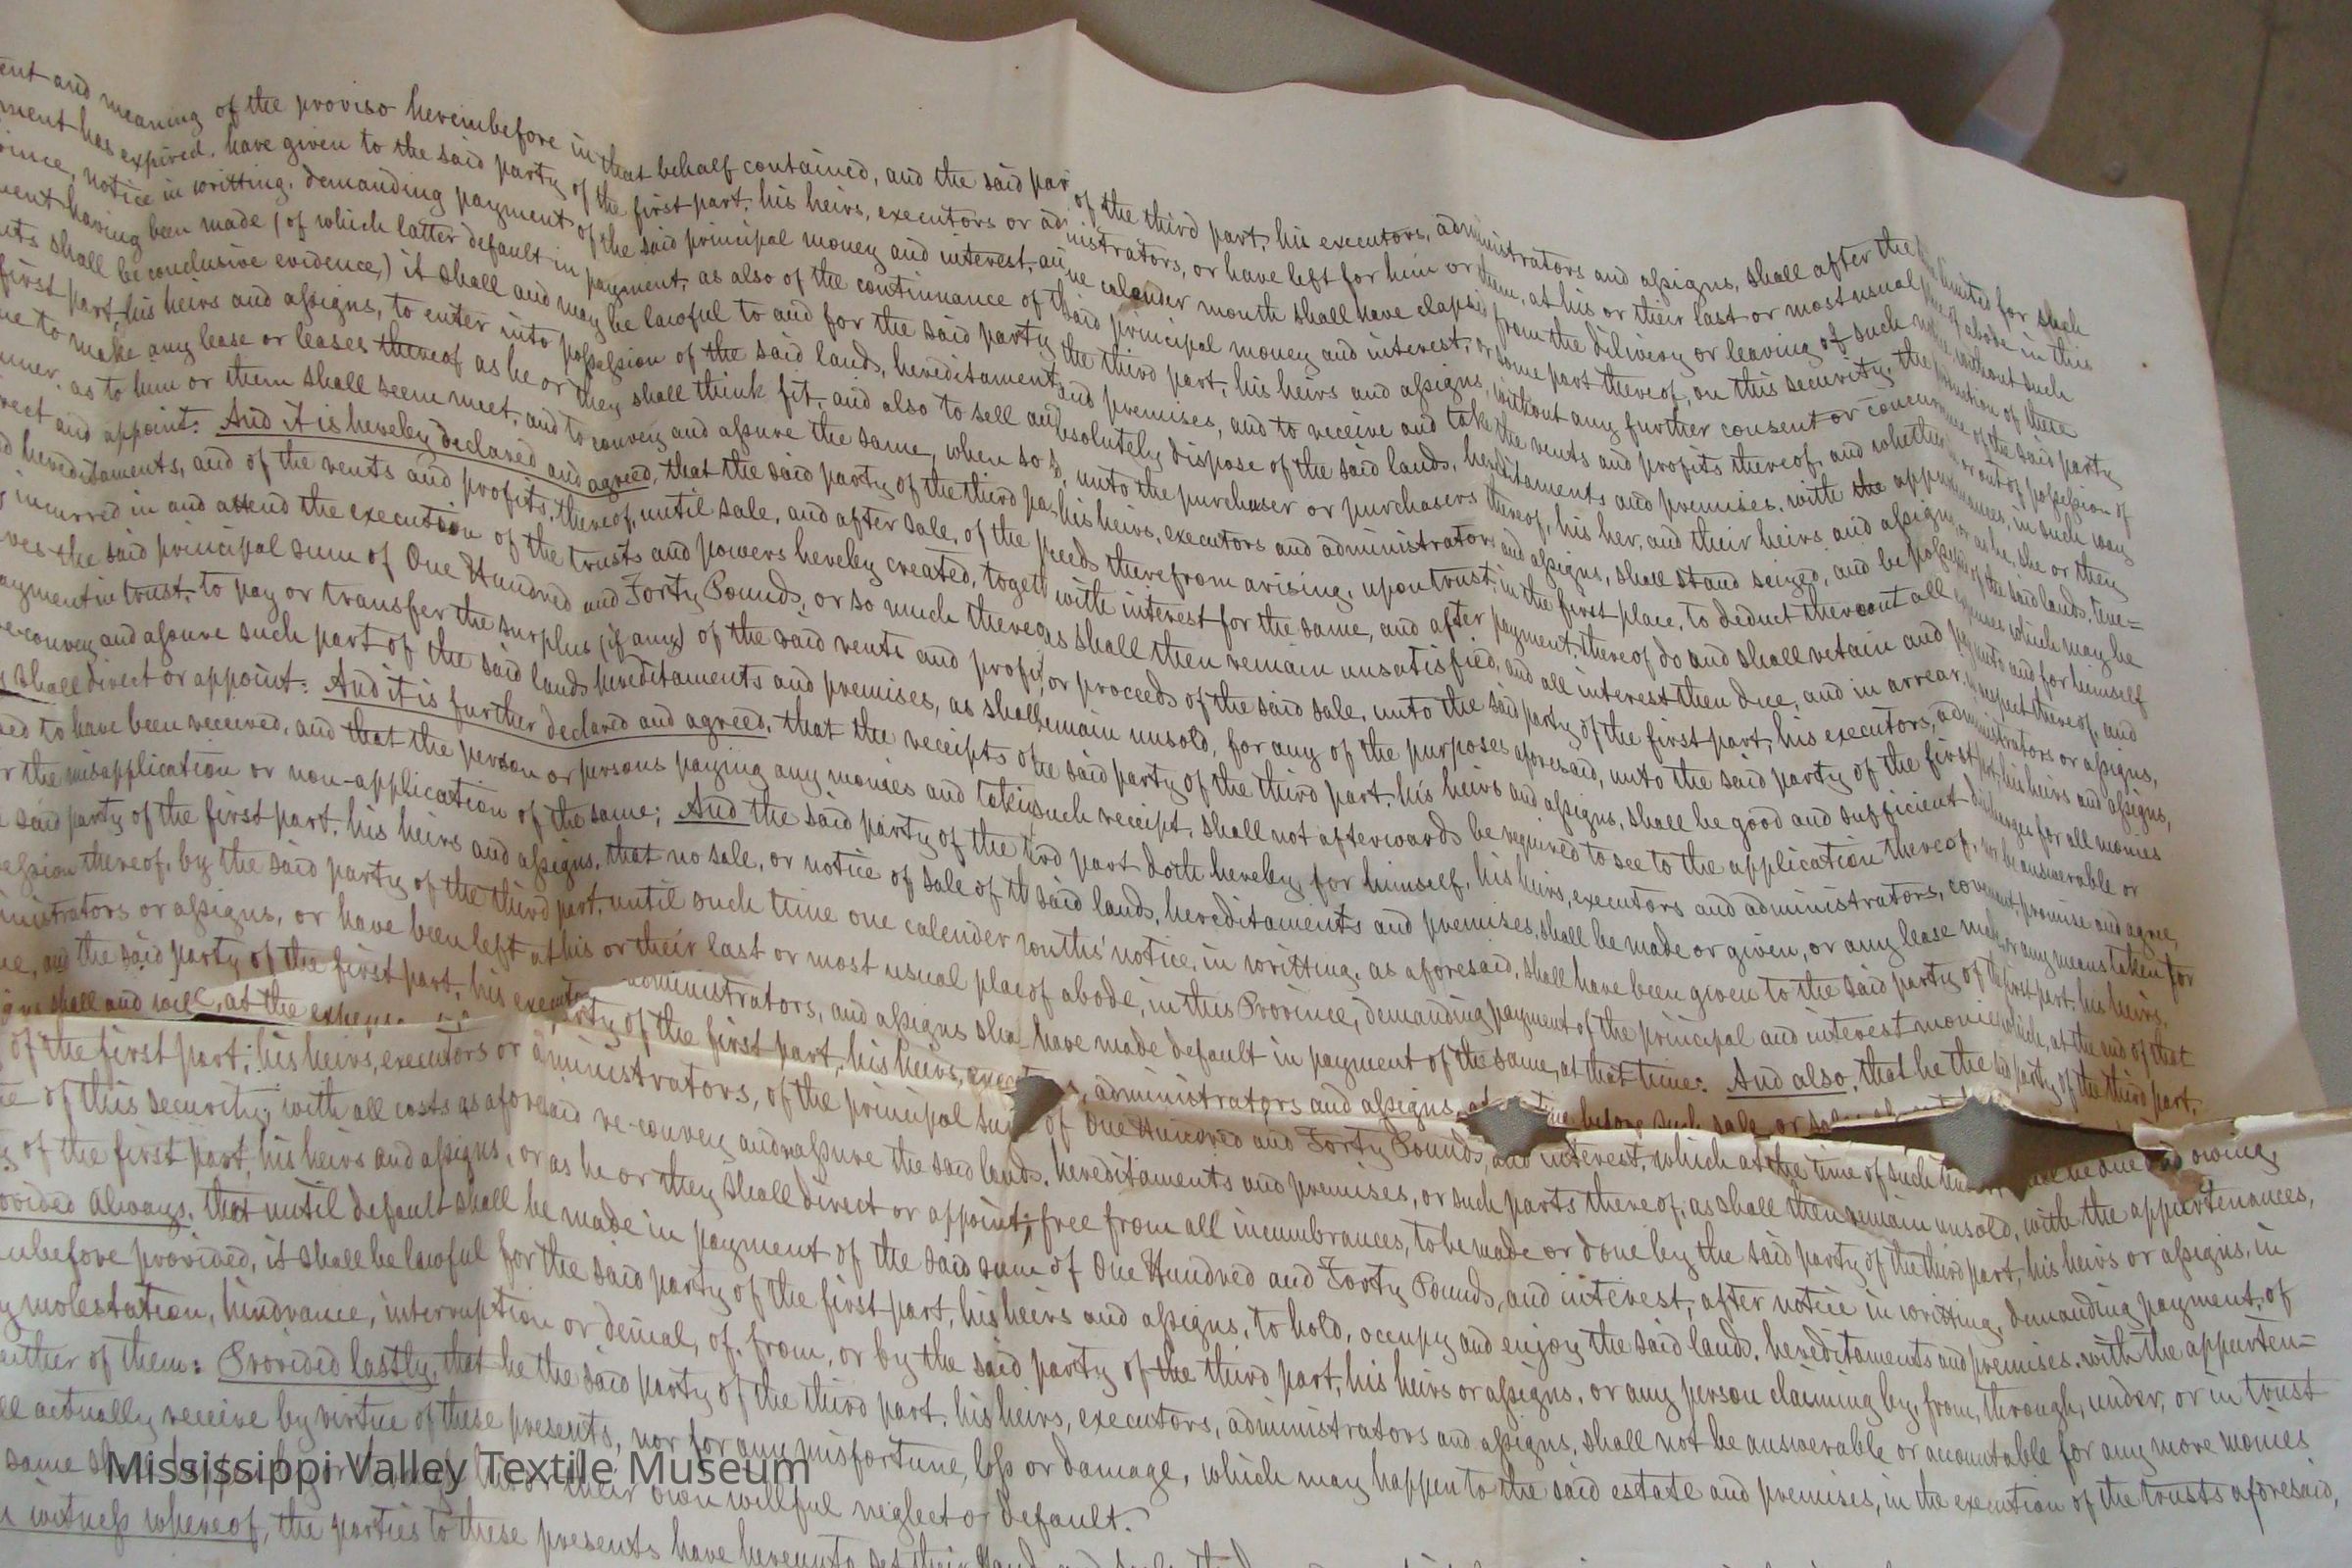 ent and meaning of the proviso hereinbefore in that behalf contained, and the said par of the third part, his executors, administrators and assigns, shall after the limited for such
ment has expired, have given to the said party of the first part, his heirs, executors or administrators, or have left for him or them, at his or their last or most usual place of abode in this
vince, notice in writting, demanding payment of the said principal money and interest, and calender month shall have elapsed from the delivery or leaving of such notice without such
ment having been made (of which latter default in payment, as also of the continuance of the said principal money and interest, or some part thereof, on this security, the production of these
nts shall be conclusive evidence,) it shall and may be lawful to and for the said party the third part, his heirs and assigns, without any further consent or concurrence of the said party
first part, his heirs and assigns, to enter into possession of the said lands, hereditaments and premises, and to receive and take the rents and profits thereof, and whether in or out of possession of
me to make any lease or leases thereof as he or they shall think fit, and also to sell and absolutely dispose of the said lands, hereditaments and premises, with the appurtenances, in such way
nner, as to him or them shall seem meet, and to convey and assure the same, when so unto the purchaser or purchasers thereof, his her, and their heirs and assigns, or as he, she or they
rect and appoint: And it is hereby declared and agreed, that the said party of the third pa his heirs, executors and administrators and assigns, shall stand seized, and be possessed of the said lands, tene=
d hereditaments, and of the rents and profits, thereof, until sale, and after sale, of the proceeds therefrom arising, upon trust, in the first place, to deduct thereout all expenses which may be
incurred in and attend the execution of the trusts and powers hereby created, together with interest for the same, and after payment thereof do and shall retain and pay unto and for himself
ves the said principal sum of One Hundred and Forty Pounds, or so much thereof as shall then remain unsatisfied, and all interest then due, and in arrear, in respect thereof, and
ayment in trust, to pay or transfer the surplus (if any) of the said rents and profits, or proceeds of the said sale, unto the said party of the first part, his executors, administrators or assigns,
reconvey and assure such part of the said lands hereditaments and premises, as shall remain unsold, for any of the purposes aforesaid, unto the said party of the first part, his heirs and assigns,
y shall direct or appoint: And it is further declared and agreed, that the receipts of the said party of the third part, his heirs and assigns, shall be good and sufficient discharges for all monies
ed to have been received, and that the person or persons paying any monies and taking such receipt, shall not afterwards be required to see to the application thereof, or be answerable or
r the misapplication or non-application of the same; And the said party of the third part doth hereby, for himself, his heirs, executors and administrators, covenant, promise and agree,
said party of the first part, his heirs and assigns, that no sale, or notice of sale of the said lands, hereditaments and premises, shall be made or given, or any lease made, or any means taken for
ession thereof, by the said party of the third part, until such time one calender months' notice, in writting, as aforesaid, shall have been given to the said party of the first part, his heirs,
ministrators or assigns, or have been left at his or their last or most usual place of abode, in this Province, demanding payment of the principal and interest monies which, at the end of that
me, and the said party of the first part, his executors administrators, and assigns shall have made default in payment of the same, at that time: And also, that he the said party of the third part,
igns shall and will, at the expense party of the first part, his heirs, executors, administrators and assigns, at before such sale, or
of the first part, his heirs, executors or administrators, of the principal sum of One Hundred and Forty Pounds, and interest, which at the time of such shall be due and owing,
e of this security, with all costs as aforesaid re-convey and reassure the said lands, hereditaments and premises, or such parts thereof, as shall then remain unsold, with the appurtenances,
y of the first part, his heirs and assigns, or as he or they shall direct or appoint; free from all incumbrances, to be made or done by the said party of the third part, his heirs or assigns, in
ovided always, that until default shall be made in payment of the said sum of One Hundred and Forty Pounds, and interest, after notice in writting, demanding payment, of
inbefore provided, it shall be lawful for the said party of the first part, his heirs and assigns, to hold, occupy and enjoy the said lands, hereditaments and premises, with the apperten=
y molestation, hindrance, interruption or denial, of, from, or by the said party of the third part, his heirs or assigns, or any person claiming by, from, through, under, or in trust
either of them: Provided lastly, that he the said party of the third part, his heirs, executors, administrators and assigns, shall not be answerable or accountable for any more monies
ll actually receive by virtue of these presents, nor for any misfortune, loss or damage, which may happen to the said estate and premises, in the execution of the trusts aforesaid,
same or their own willful neglect or default.
n witness whereof, the parties to these presents have hereunto set their Hands and
Mississippi Valley Textile Museum